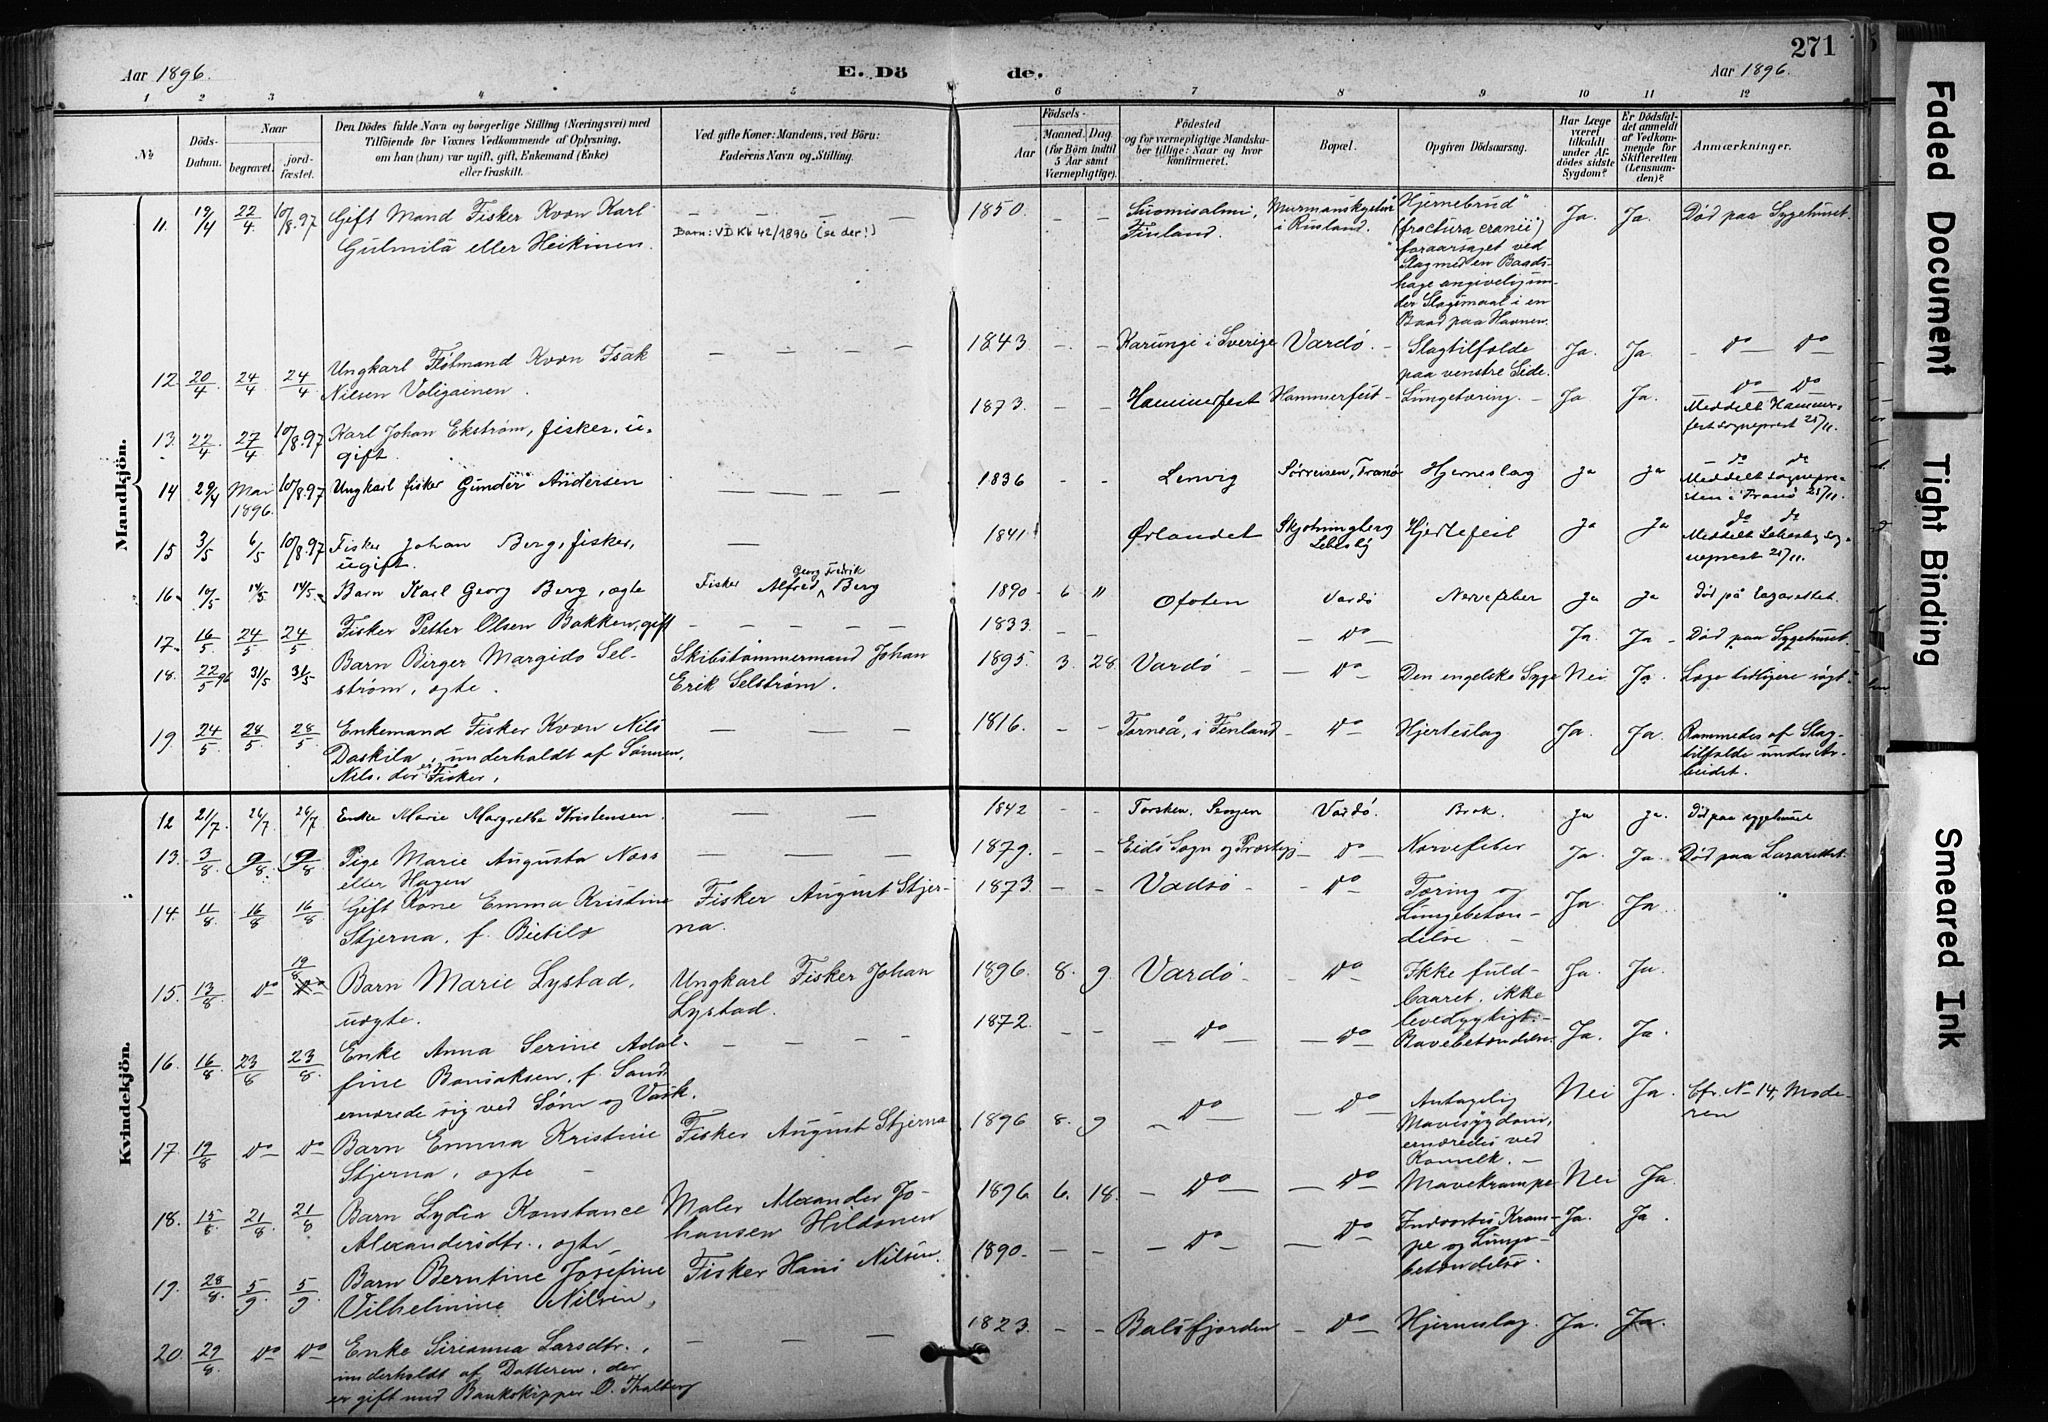 271
Aar 1896.
E. Dö de.
Aar 1896.
1 2 3 4 5 6 7 8 9 10 11 12
No
Döds-Datum.
Naar
begravet.
jord-fæstet.
Den Dödes fulde Navn og borgerlige Stilling (Næringsvei) med
Tilföiende for Voxnes Vedkommende af Oplysning,
om han (hun) var ugift, gift, Enkemand (Enke)
eller fraskilt.
Ved gifte Koner: Mandens, ved Börn:
Faderens Navn og Stilling.
Födsels-
Aar
Maaned. Dag.
(for Börn indtil
5 Aar samt
Værnepligtige).
Födested
og for værnepligtige Mandska-
ber tillige: Naar og hvor
konfirmeret.
Bopæl.
Opgiven Dödsaarsag.
Har Læge
været
tilkaldt
under Af-
dödes sidste
Sygdom?
Er Dödsfal-
det anmeldt
af Vedkom-
mende for
Skifteretten
(Lensman-
den)?
Anmærkninger.
Mandkjön.
11. 19/4 22/4 10/8.97 Gift Mand Fisker Kvæn Karl
Gulmilä eller Heikinen.
Barn: VD Kb 42/1896 (se der!)
1850. Suomisalmi, Finland.
Murmanskysten i Rusland.
"Hjernebrud"
(fractura cranii)
foraarsaget ved
Slag med en Baads-
hage angivelig un-
der Slagsmaal i en
Baad paa Havnen.
Ja. Ja. Död paa Sygehuset.
12. 20/4 24/4 24/4 Ungkarl Fløtmand Kvæn Isak
Nilsen Voligainen.
1843 Karungi i Sverige Vardø. Slagtilfælde
paa venstre Side. Ja. Ja. Do Do
13. 22/4 27/4 10/8.97 Karl Johan Ekstrøm, fisker, u-
gift.
1873. Hammerfest Hammerfest Lungetæring. Ja Ja. Do Do
Meddelt Hammer-
fest sogneprest 25/11.
14 29/4 Mai 1896. 10/8.97 Ungkarl fisker Gunder Andersen
1836 Lenvig Sørreisen, Tranø Hjerneslag ja ja do do
Meddelt sognepre-
sten i Tranö 25/11.
15 3/5 6/5 10/8.97 Fisker Johan Berg, fisker,
ugift.
1841 Ørlandet Skjøtningberg Lebesby Hjertefeil ja ja do do
Meddelt Lebesby sog-
neprest 25/11.
16 10/5 14/5 14/5 Barn Karl Georg Berg, ægte
Fisker Alfred Georg Fredrik Berg
1890 6 11 Ofoten Vardø Nervefeber ja ja Död på Lazarettet.
17. 16/5 24/5 24/5 Fisker Petter Olsen Bakken, gift
1833. Do Ja. Ja Död paa Sygehuset
18. 22/5 96 31/5 31/5 Barn Birger Margido Sel-
strøm, ægte.
Skibstømmermand Johan
Erik Selstrøm.
1895. 3. 28. Vardø Do Den engelske Syge Nei Ja. Læge tidligere søgt
19. 24/5 28/5 28/5 Enkemand Fisker Kvæn Nils
Daskila, underholdt af Sønnen,
Nils, der er Fisker.
1816. Torneå, i Finland Do Hjerteslag Ja. Ja. Rammedes af Slag-
tilfælde under Ar-
beidet.
Kvindekjön.
12 21/7. 26/7 26/7 Enke Marie Margrethe Kristensen.
1842 Torsken, Senjen Vardø. Brok. ja ja. Död paa sygehuset
13. 3/8 9/8 9/8 Pige Marie Augusta Noss
eller Hagen
1879. Eids Sogn og Præstegj Do Nervefeber Ja. Ja. Död paa Lazarettet.
14. 11/8 16/8 16/8 Gift Kone Emma Kristine
Stjerna, f. Bietilæ
Fisker August Stjer-
na.
1873 Vadsø Do Tæring og
Lungebetæn-
delse. Ja. Ja.
15. 13/8 Do 19/8 Barn Marie Lystad,
uægte.
Ungkarl Fisker Johan
Lystad.
1896. 8. 9. Vardø Do Ikke fuld-
baaret, ikke
levedygtigt. Ja. Ja.
16. 16/8 23/8 23/8. Enke Anna Serine Adol-
fine Bensaksen, f. Sand
ernærede sig ved Søm og Vask.
1872. Do Do Bavebetændelse. Ja. Ja.
17. 19/8 Do Do Barn Emma Kristine
Stjerna, ægte
Fisker August Stjerna
1896 8. 9 Do Do Antagelig
Mavesygdom,
ernæredes ved
Komelk. Nei Ja. Cfr. No 14, Mode-
ren
18. 15/8 21/8 21/8 Barn Lydia Konstance
Alexandersdtr., ægte
Maler Alexander Jo-
hansen Hildonen
1896. 6. 18. Do Do Mavekrampe Nei Ja.
19. 28/8. 5/9 5/9 Barn Berntine Josefine
Vilhelmine Nilsen,
Fisker Hans Nilsen.
1890 Do Do Indvortes Kram-
pe og Lunge-
betændelse. Ja. Ja.
20. 29/8 Do Do Enke Sirianna Larsdtr.,
underholdt af Datteren, der
er gift med Bankskipper O. Thalberg
1823. Balsfjorden Do Hjerneslag. Ja. Ja.
Faded Document
Tight Binding
Smeared Ink